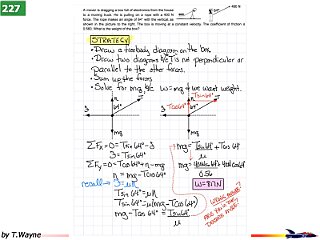 227
A mover is dragging a box full of electronics from the house
to a moving truck. He is pulling on a rope with a 490 N
force. The rope makes an angle of 64° with the vertical, as
shown in the picture to the right. The box is moving at a constant velocity. The coefficient of friction is
0.560. What is the weight of the box?
490 N
STRATEGY
• Draw a freebody diagram on the box.
• Draw two diagrams b/c T is not perpendicular or
parallel to the other forces.
• Sum up the forces
• Solve for mg b/c w=mg & we want weight.
n
T
64°
mg
n
Tsin64°
Tcos64°
64°
mg
ΣFx=0=Tsin64°-
=Tsin64°
ΣFy=0=Tcos64°+n-mg
n = mg-Tcos64°
recall→
Tsin64°=μn
Tsin64°=μ(mg-Tcos64°)
mg-Tcos64°=Tsin64°/μ
mg=Tsin64°/μ+Tcos64°
0.56
by T.Wayne